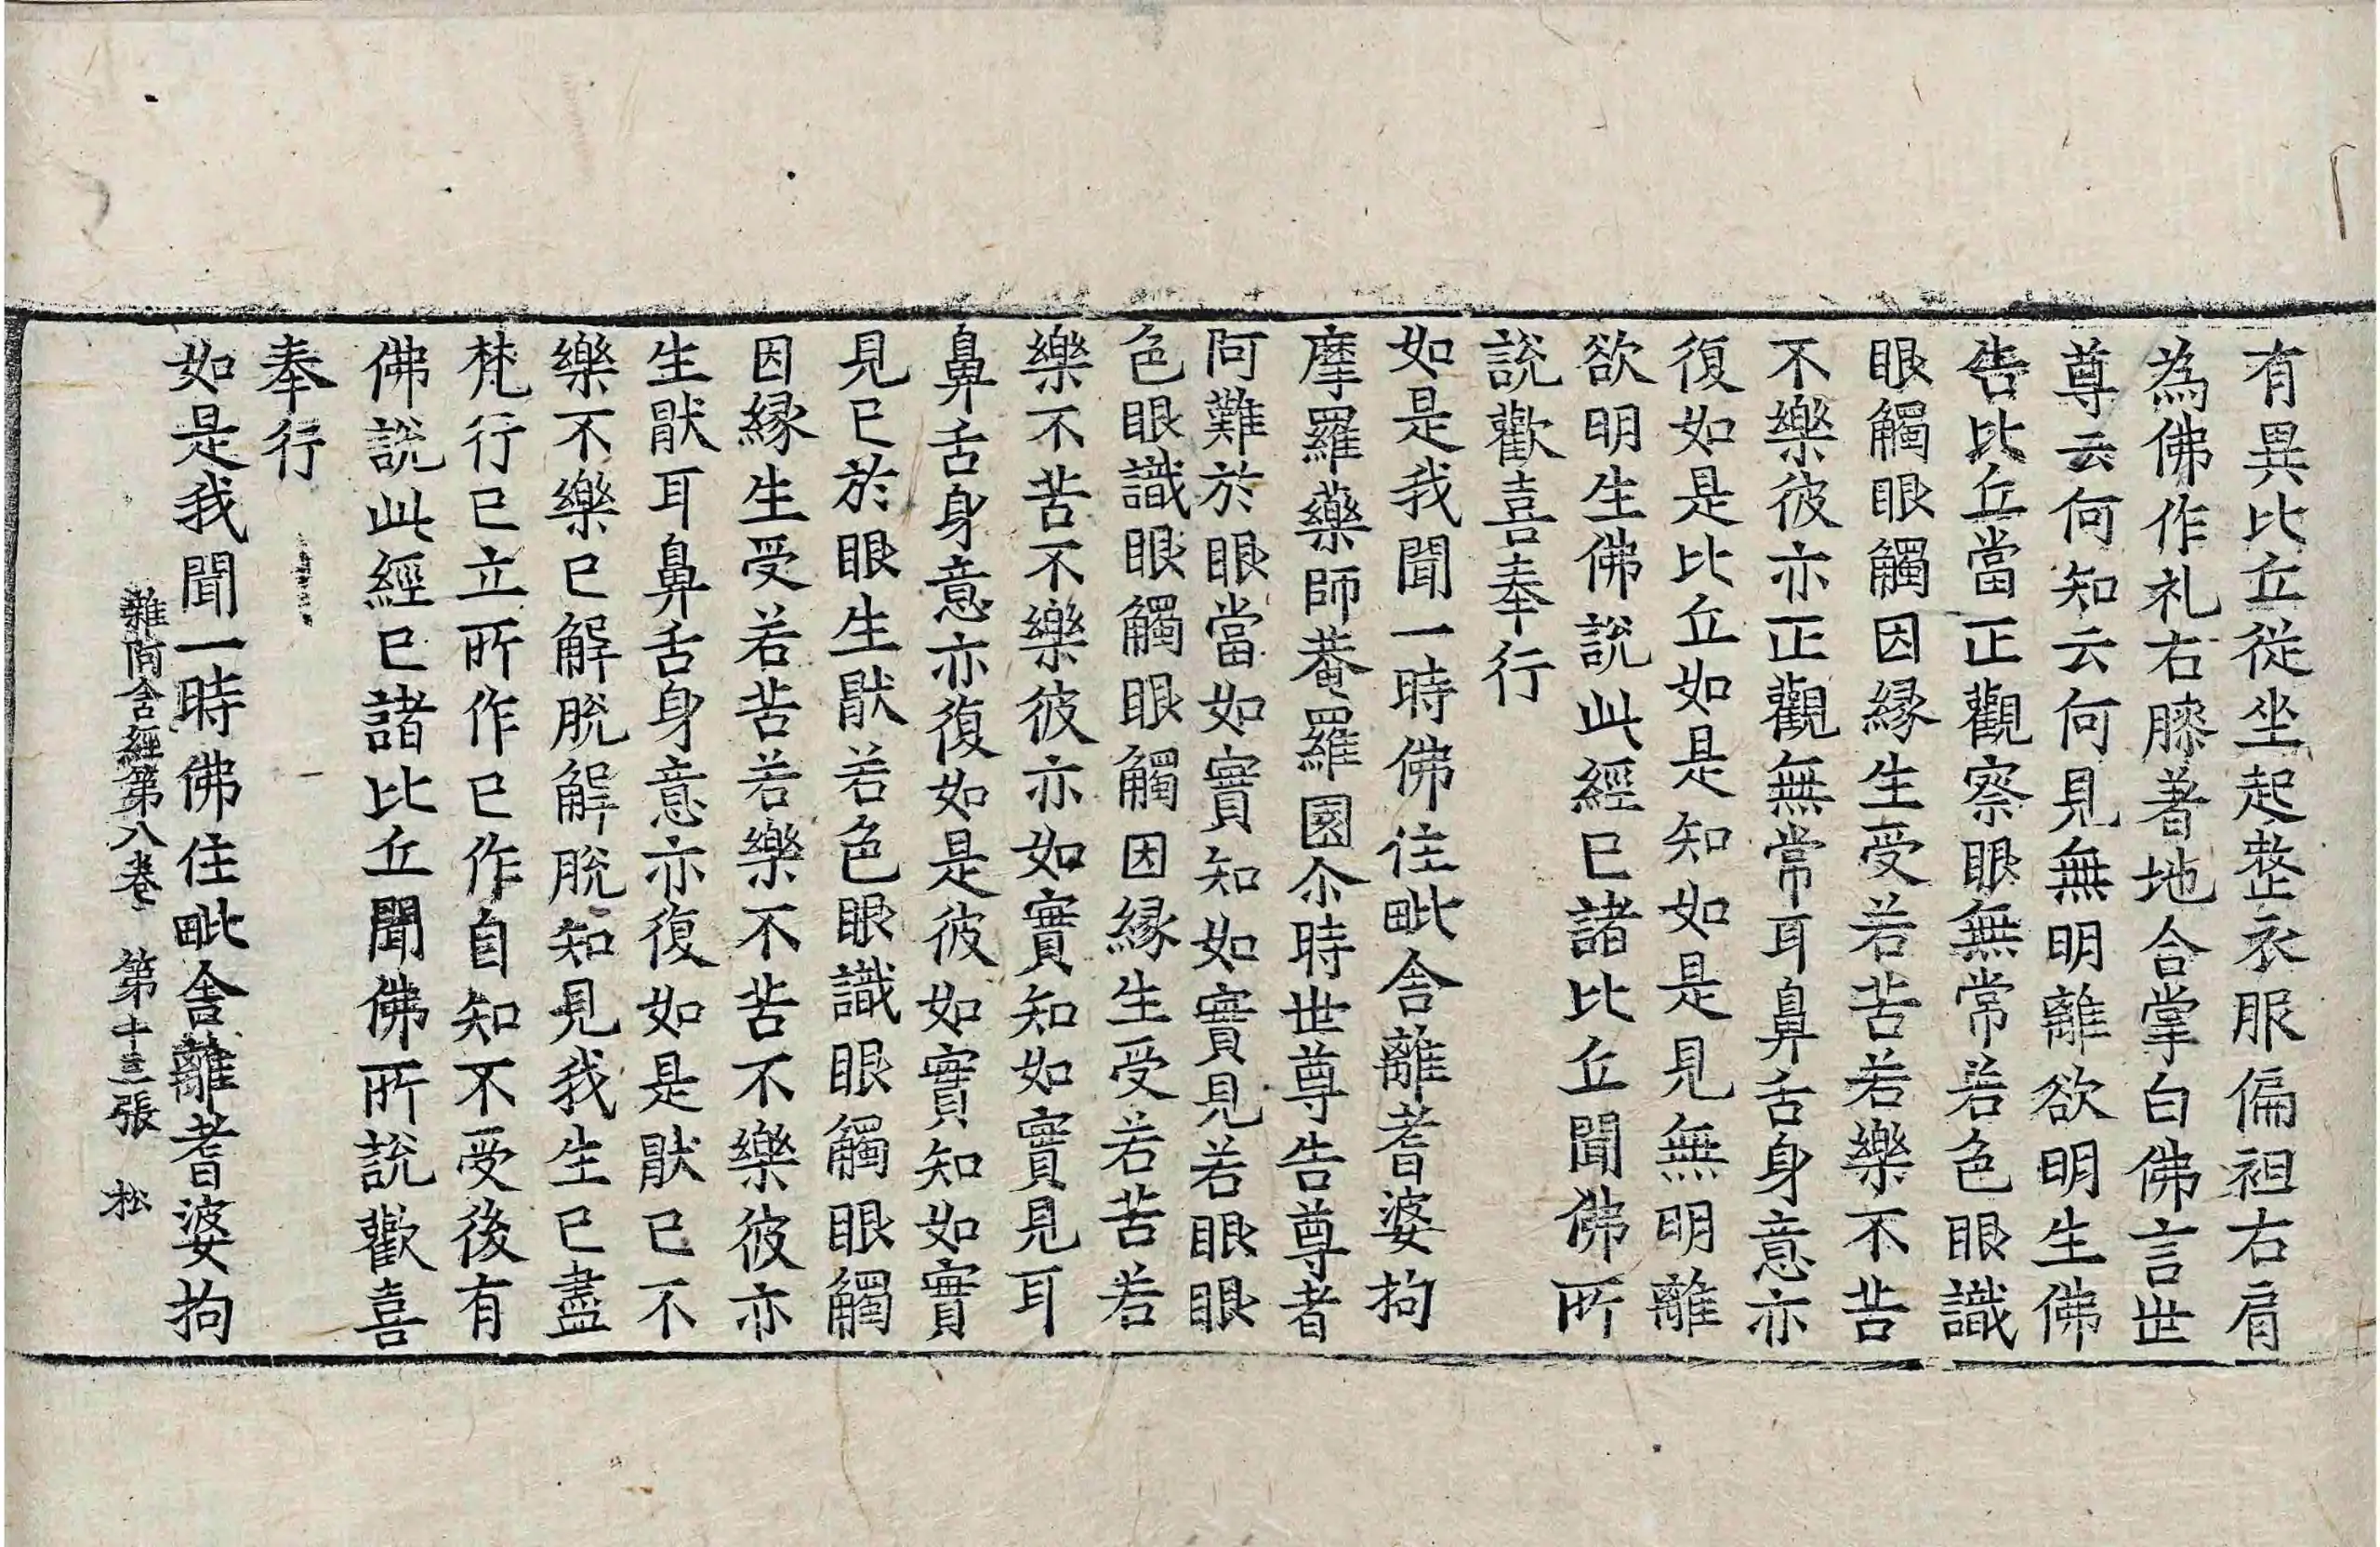 有異比丘從坐起整衣服偏袒右肩
為佛作礼右膝著地合掌白佛言世
尊云何知云何見無明離欲明生佛
告比丘當正觀察眼無常若色眼識
眼觸眼觸因縁生受若苦若樂不苦
不樂彼亦正觀無常耳鼻舌身意亦
復如是比丘如是知如是見無明離
欲明生佛說此經已諸比丘聞佛所
說歡喜奉行
如是我聞一時佛住毗舍離耆婆拘
摩羅藥師菴羅園尒時世尊告尊者
阿難於眼當如實知如實見若眼眼
色眼識眼觸眼觸因縁生受若苦若
樂不苦不樂彼亦如實知如實見耳
鼻舌身意亦復如是彼如實知如實
見已於眼生猒若色眼識眼觸眼觸
因縁生受若苦若樂不苦不樂彼亦
生猒耳鼻舌身意亦復如是猒已不
樂不樂已解脫解脫知見我生已盡
梵行已立所作已作自知不受後有
佛說此經已諸比丘聞佛所說歡喜
奉行
如是我聞一時佛住毗舍離耆婆拘
雜阿含經第八卷 第十三張 松